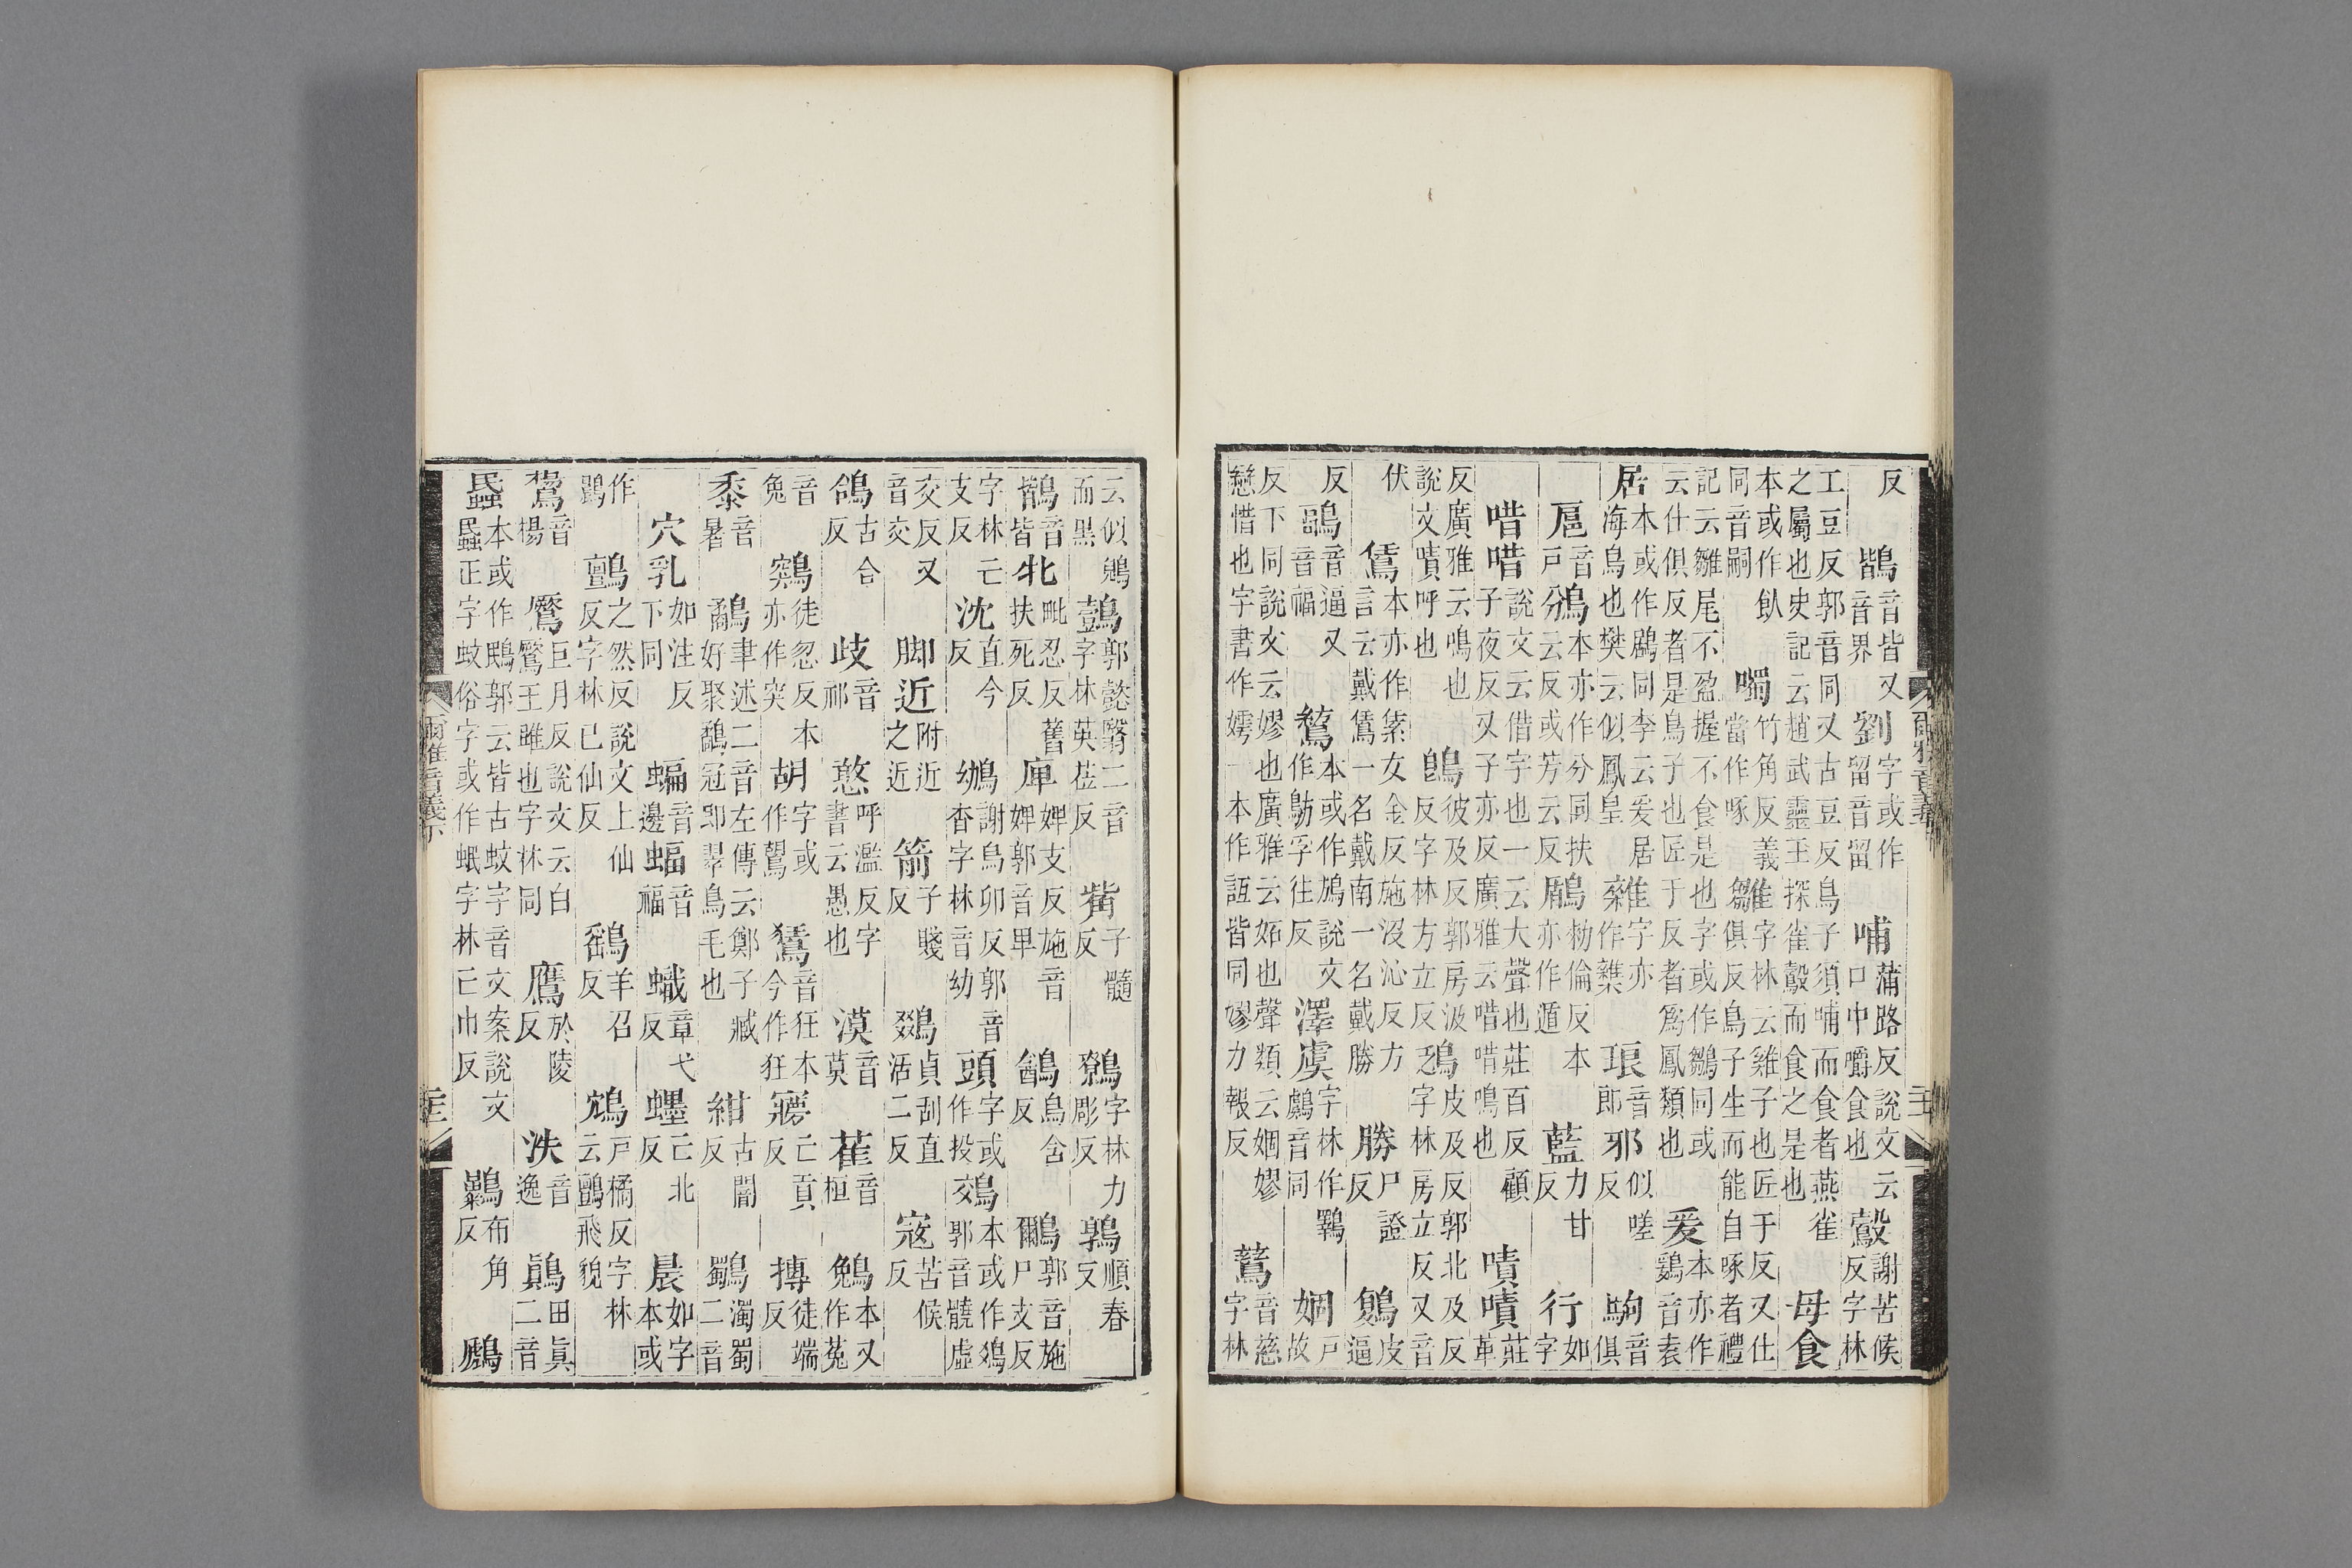 反 鶛 音皆又音界 劉 字或作留音留 哺 蒲路反說文云口中嚼食也 鷇 謝苦候反字林
工豆反郭音同又古豆反鳥子須哺而食者燕雀之屬也史記云趙武靈王探雀鷇而食之是也 母食
本或作飤同音嗣 噣 竹角反義當作啄 雛 字林云雞子也匠于反又仕俱反鳥子生而能自啄者禮
記云雛尾不盈握不食是也字或作鶵同或云仕俱反者是鳥子也匠于反者爲鳳類也 爰 本亦作鶢音袁
居 本或作鶋同李云爰居海鳥也樊云似鳳皇 雜 字亦作 琅 音郎 邪 似嗟反 駒 音俱
鳸 音戶 鳻 本亦作分同扶云反或芳云反 鶞 勑倫反本亦作遁 藍 力甘反 行 如字
唶唶 說文云借字也一云大聲也莊百反顧子夜反又子亦反廣雅云唶唶鳴也 嘖嘖 莊革
反廣雅云鳴也說文嘖呼也 鵖 彼及反郭房汲反字林方立反 鴔 皮及反郭北及反字林房立反又音
伏 鵀 本亦作紝女金反施沒沁反方言云戴鵀一名戴南一名戴勝 勝 尸證反 鶝 皮逼
反 鶝 音逼又音福 鶭 本或作鴋說文作鶭孚往反 澤虞 字林作鸅鸆音同 婟 戶故
反下同說文云嫪也廣雅云妬也聲類云婟嫪戀惜也字書作嫮一本作皆同嫪力報反 鶿 音慈字林
爾雅音義
云似鶃而黑 鷧 郭懿翳二音字林英莅反 觜 子髓反 鷯 字林力彫反 鶉 順春反
鶛 音皆 牝 毗忍反舊扶死反 庳 婢支反施音婢郭音卑 鶕 鳥含反 鸍 郭音施尸支反
字林亡支反 沈 直今反 䳑 謝鳥卯反郭音杳字林音幼 頭 字或作投 鵁 本或作鵁郭音髐虛
交反又音交 脚近 附近之近 箭 子賤反 鵽 貞刮直活二反 寇 苦候反
鴿 古合反 歧 音祁 憨 呼濫反字書云愚也 漠 音莫 萑 音桓 鵵 本又作菟
音兔 鶟 徒忽反本亦作突 胡 字或作鶘 鵟 音狂本今作狂 㝱 亡貢反 摶 徒端反
黍 音暑 鷸 聿述二音左傳云鄭子臧好聚鷸冠卽翠鳥毛也 紺 古闇反 鸀 濁蜀二音
穴乳 如注反下同 蝙 音邊 蝠 音福 蟙 章弋反 䘃 亡北反 晨 如字本或
作鷐 鸇 之然反說文上仙反字林已仙反 鷂 羊召反 鴥 戶橘反字林云鸇飛貌
鸉 音楊 鷢 巨月反說文云白鷢王雎也字林同 鷹 於陵反 泆 音逸 鷏 田眞二音
蟁 本或作鴖郭云皆古蚊字音文案說文蟁正字蚊俗字或作蟁字林亡巾反 鸔 布角反 鸕
爾雅音義下